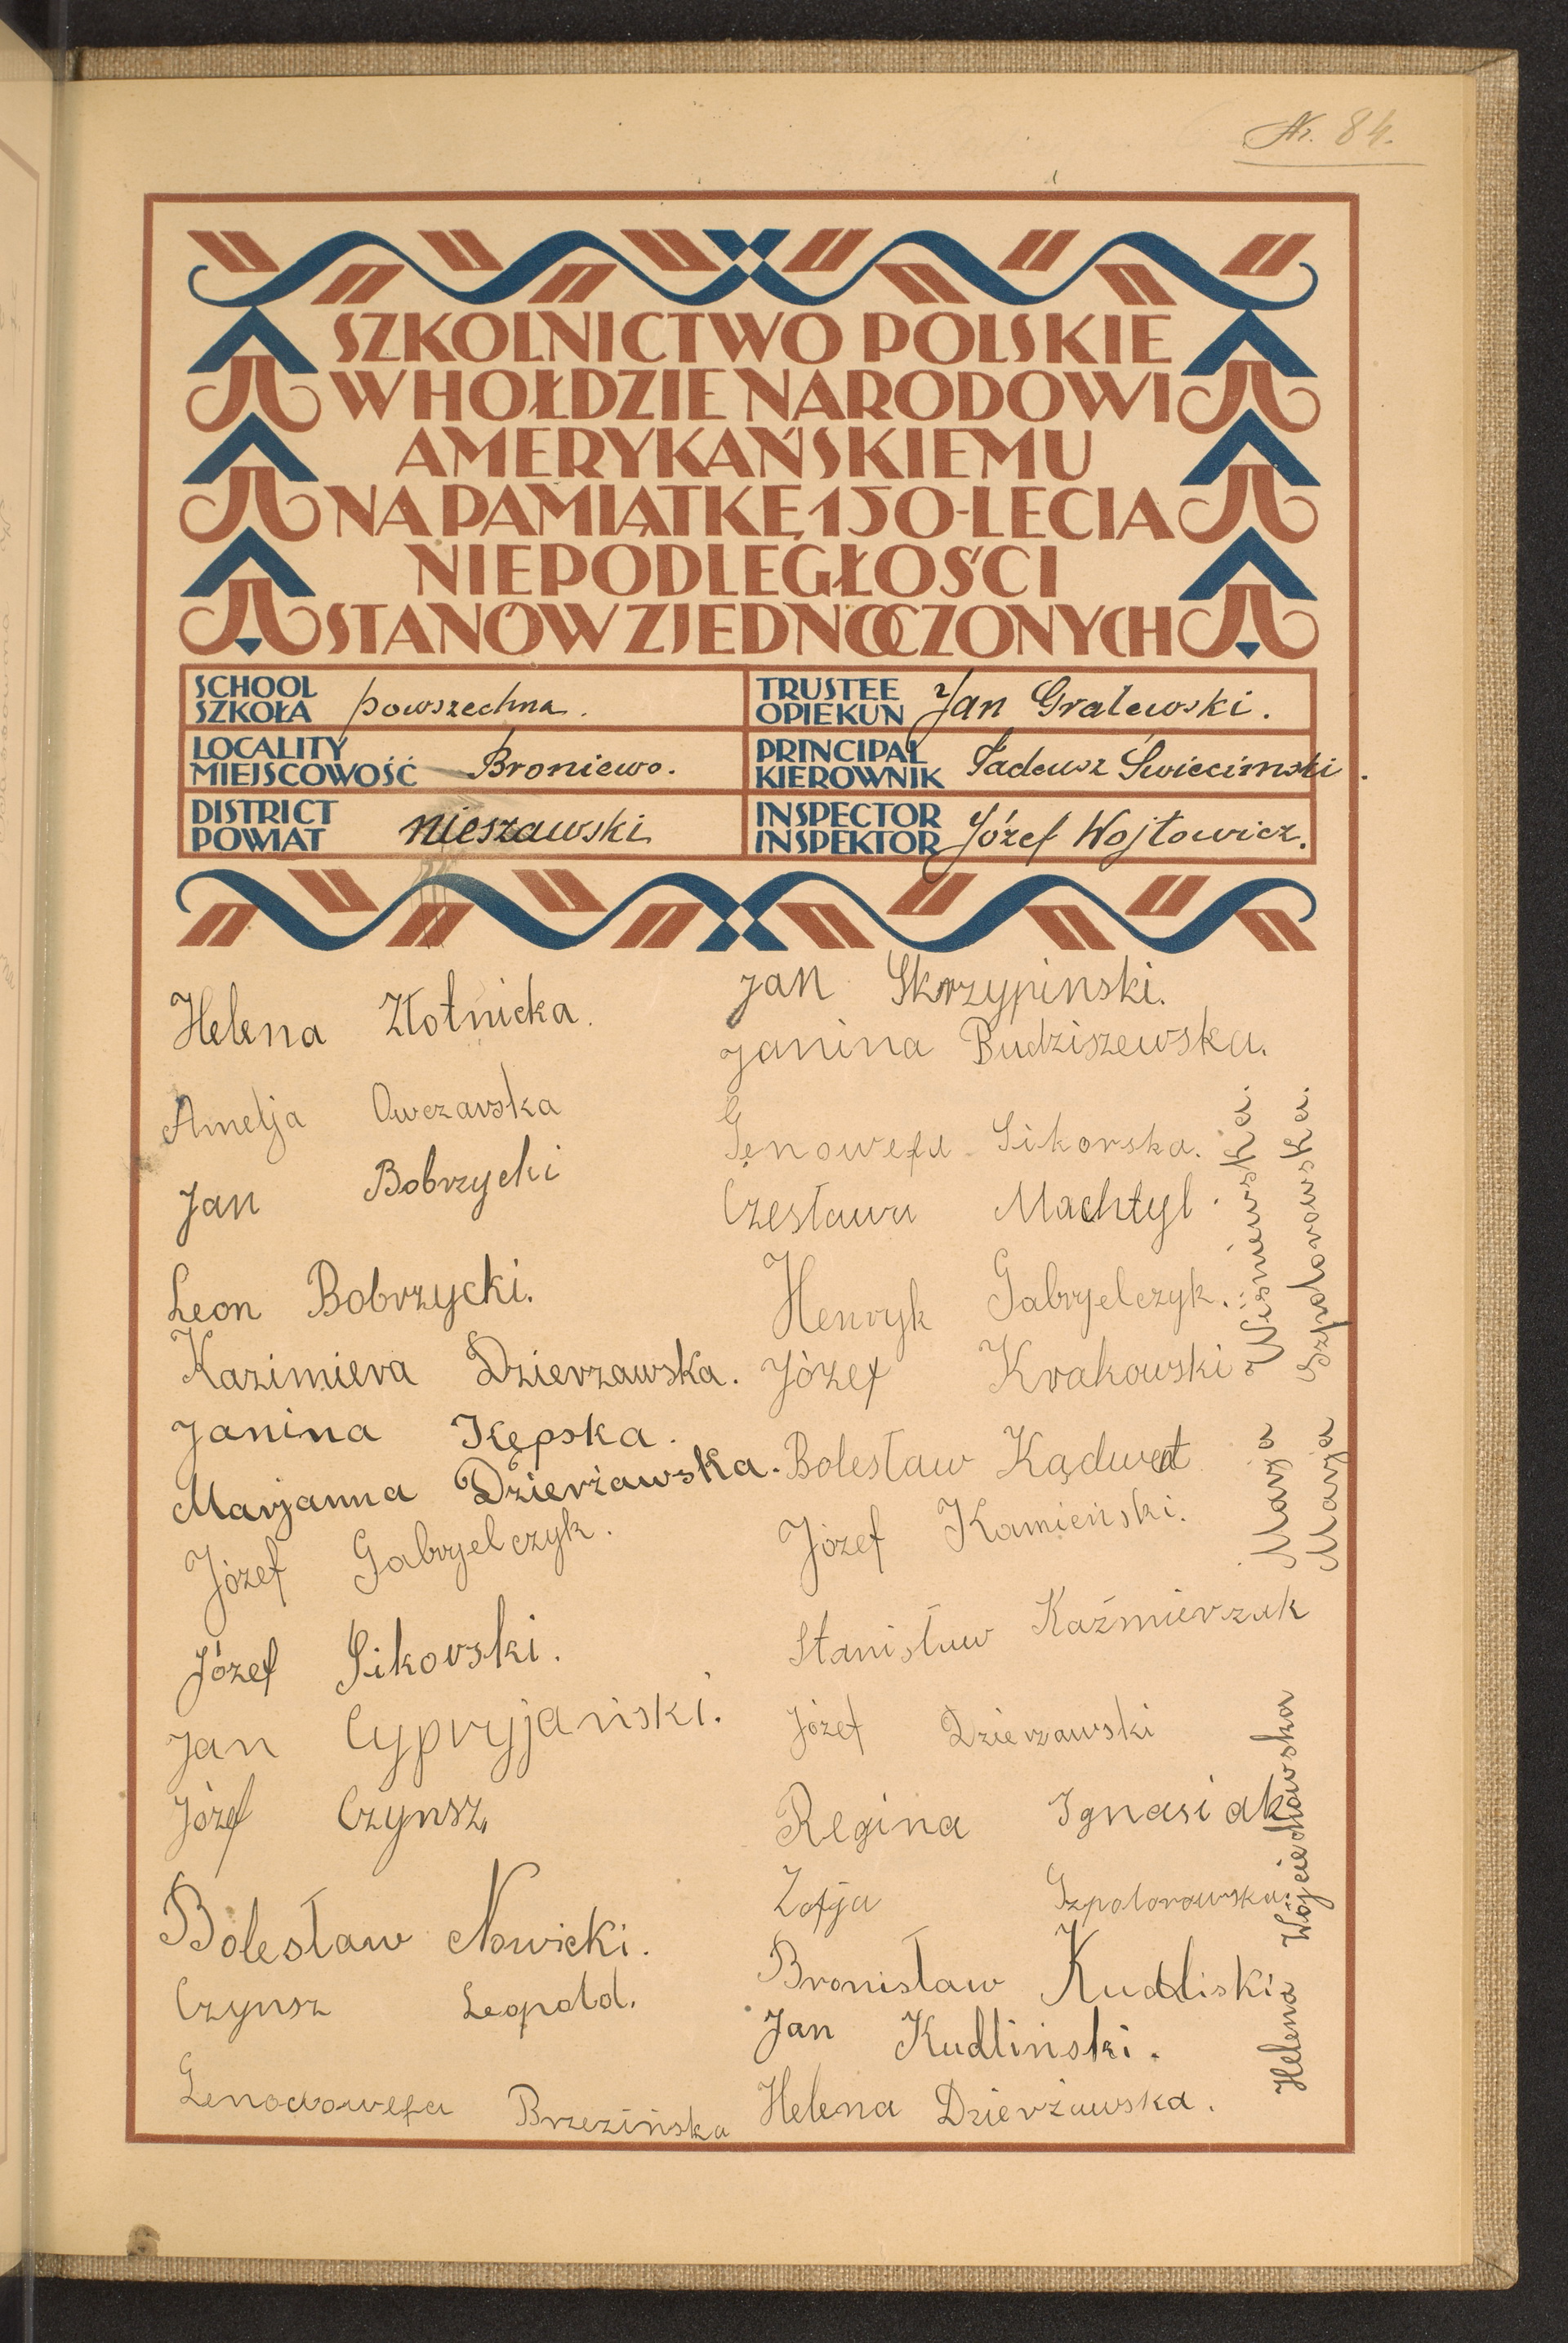 Nr. 84.
SZKOLNICTWO POLSKIE
W HOŁDZIE NARODOWI
AMERYKAŃSKIEMU
NA PAMIĄTKĘ 150-LECIA
NIEPODLEGŁOŚCI
STANÓW ZJEDNOCZONYCH
SCHOOL
SZKOŁA powszechna.
TRUSTEE
OPIEKUN Jan Gralewski.
LOCALITY
MIEJSCOWOŚĆ Broniewo.
PRINCIPAL
KIEROWNIK Tadeusz Świecimski.
DISTRICT
POWIAT nieszawski
INSPECTOR
INSPEKTOR Józef Wojtowicz.
Helena Złotnicka.
Amelja Owczarska
Jan Bobrzycki
Leon Bobrzycki.
Kazimiera Dzierzawska.
Janina Kępska.
Marjanna Dzierżawska.
Józef Gabryelczyk.
Józef Sikorski.
Jan Cypryjański.
Józef Czynsz.
Bolesław Nowicki.
Czynsz Leopold.
Genowowefa Brzezińska
Jan Skrzypinski.
Janina Budziszewska.
Genowefa Sikorska.
Czesława Machtyl.
Henryk Gabryelczyk.
Józef Krakowski
Bolesław Kądwat
Józef Kamieński.
Stanisław Kaźmierzak
Józef Dzierzawski
Regina Ignasiak
Zofja Szpotorowska.
Bronisław Kudliski
Jan Kudliński.
Helena Dzierżawska.
Marja Wiśniewska.
Marja Szpotorowska.
Helena Wojciechowska